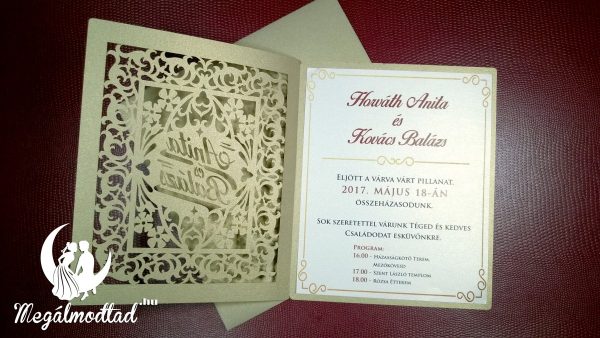 Anita
és
Balázs
Horváth Anita
és
Kovács Balázs
Eljött a várva várt pillanat,
2017. május 18-án
összeházasodunk.
Sok szeretettel várunk Téged és kedves
Családodat esküvőnkre.
Program:
16.00 - Házasságkötő Terem
Mezőkövesd
17.00 - Szent László templom
18.00 - Rózsa Étterem
Megálmodtad.hu